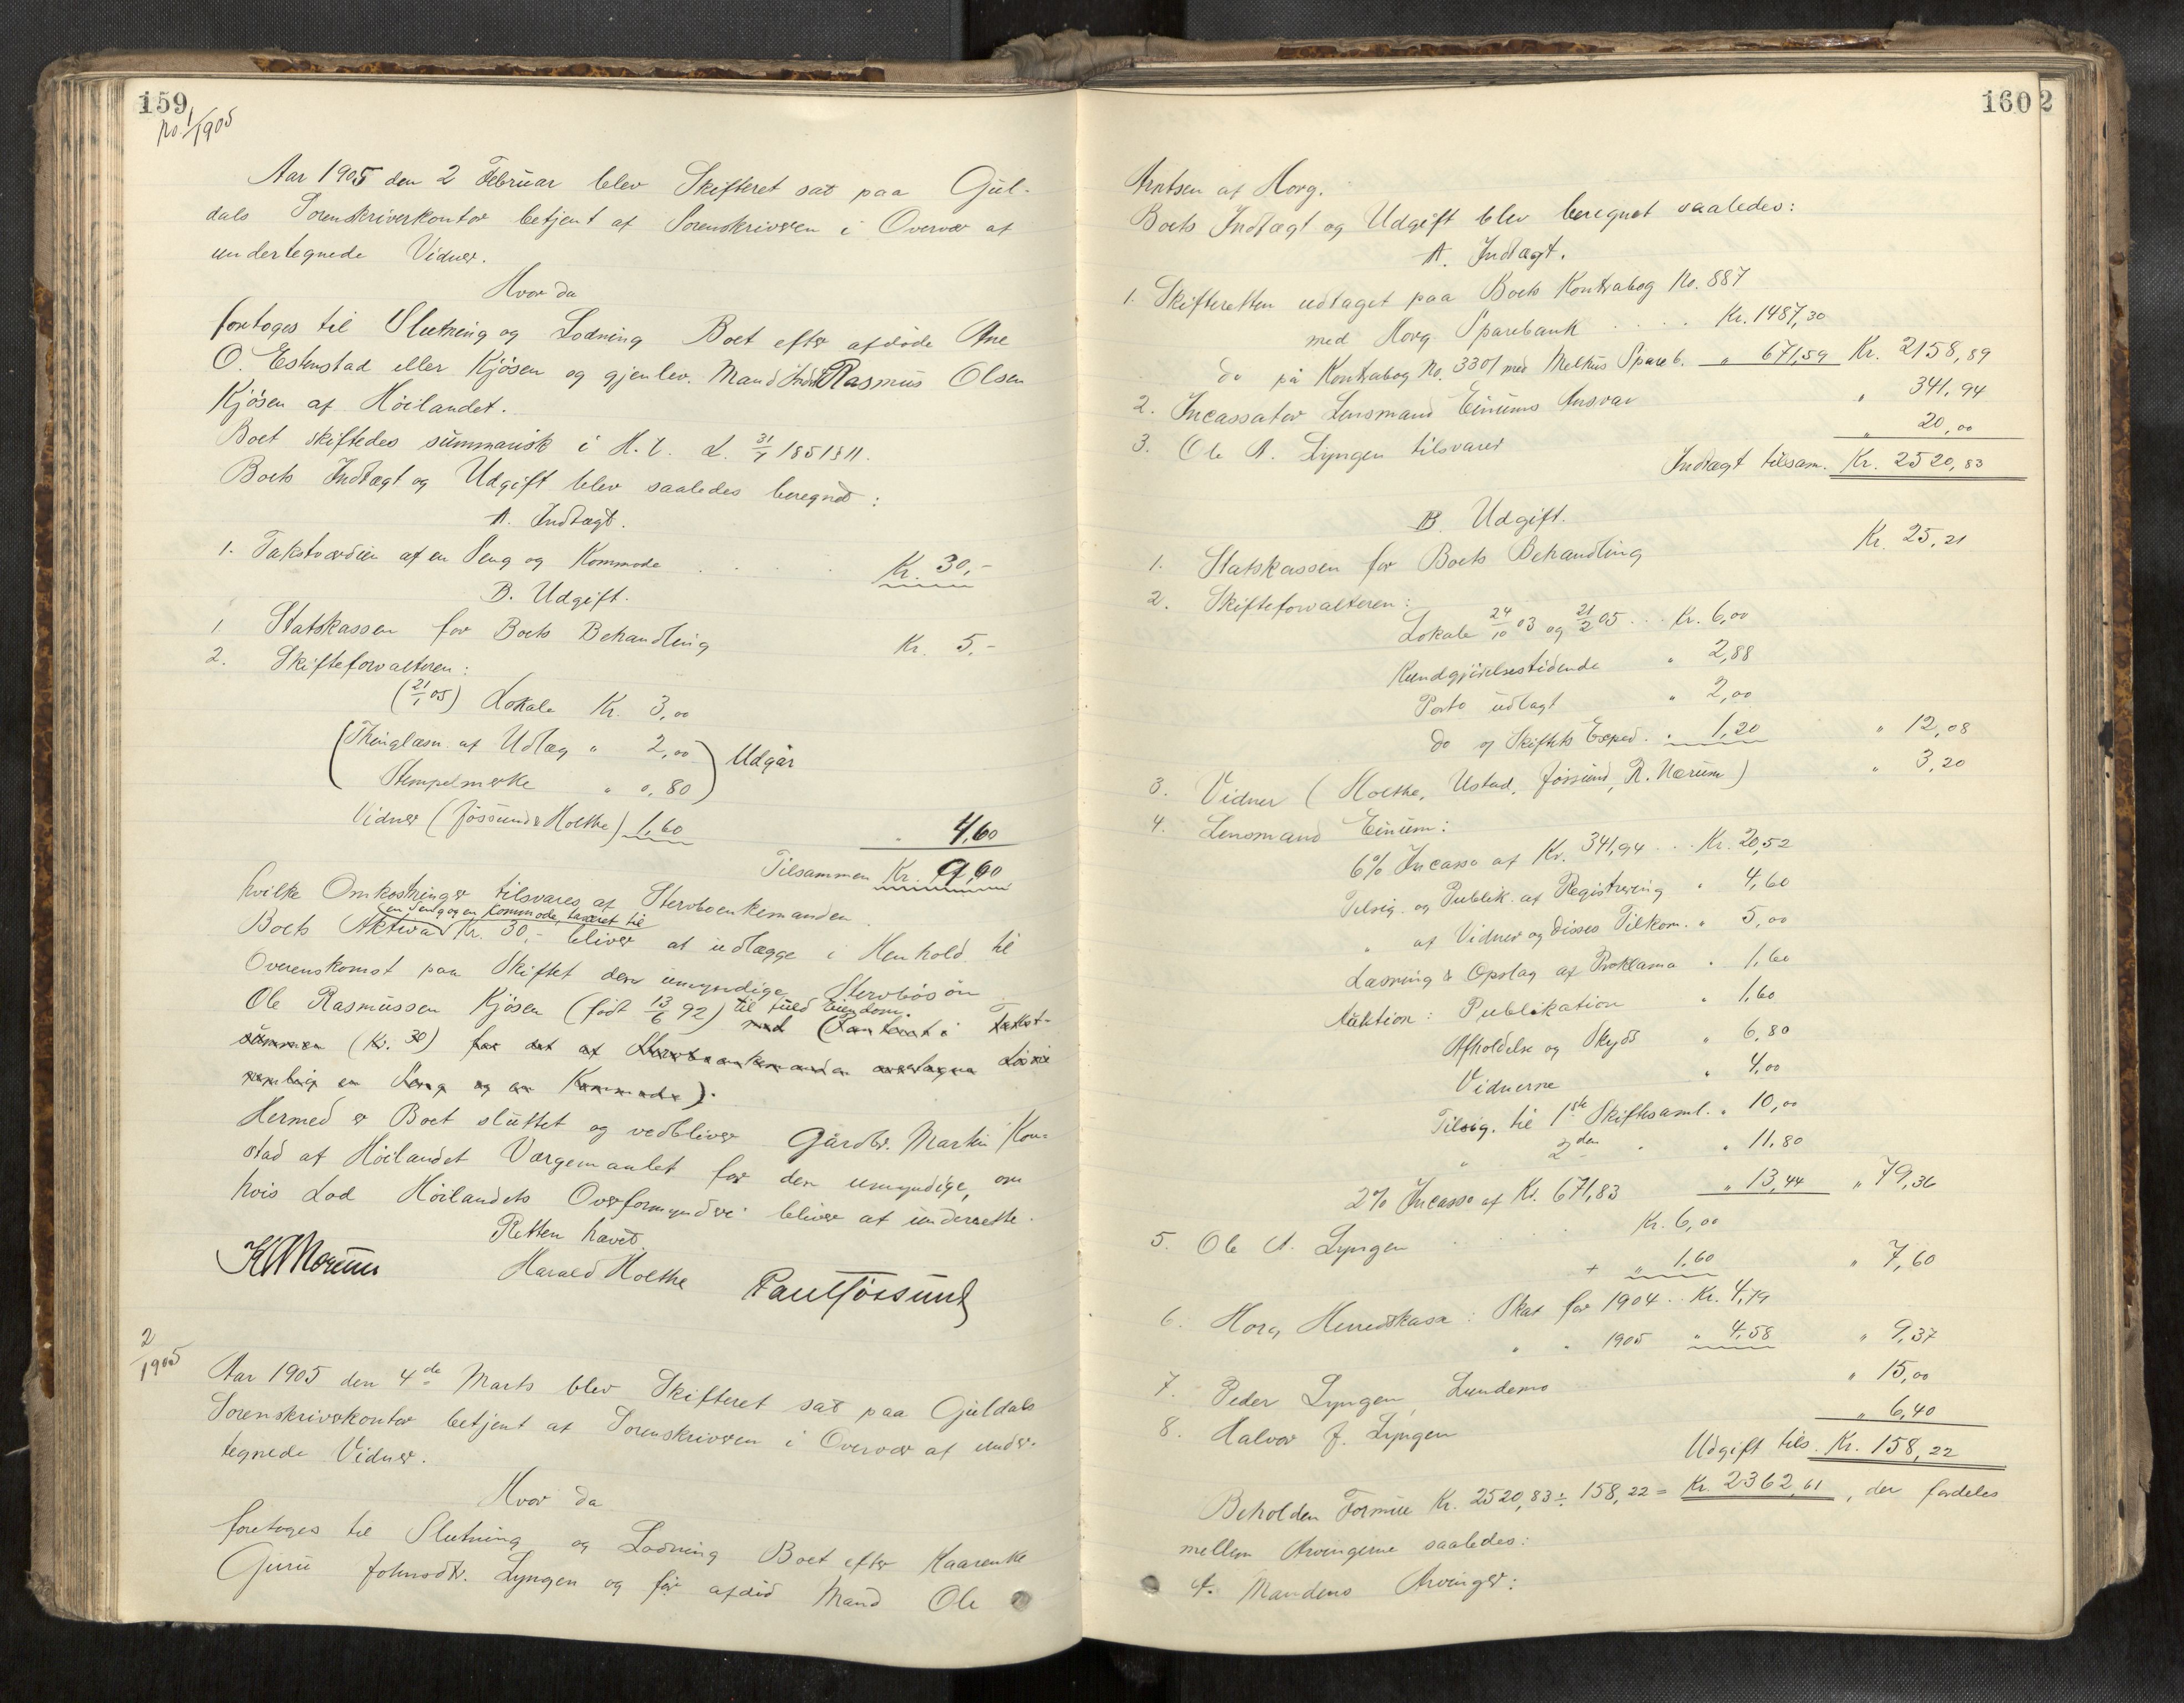 159
No. 1/1905
Aar 1905 den 2 Februar blev Skifteret sat paa Gul-
dals Sorenskriverkontor betjent af Sorenskriveren i Overvær af
undertegnede Vidner.
Hvor da
foretoges til Slutning og Lodning Boet efter afdøde Ane
O. Estenstad eller Kjøsen og gjenlev. Mand Rasmus Olsen
Kjøsen af Høilandet.
Boet skiftedes summarisk i H. t. L. 31/7 1851 § 11.
Boets Indtægt og Udgift blev saaledes beregnet:
A. Indtægt.
1. Takstværdien af en Seng og Kommode . . . . . Kr. 30,-
B. Udgift.
1 Statskassen for Boets Behandling Kr. 5.-
2. Skifteforvalteren:
(21/1 05) Lokale Kr. 3,00
(Thinglæsn. af Udlæg " 2,00
Stempelmerke " 0,80) Udgår
Vidner (Jøssund & Holthe) 1,60 " 4,60
Tilsammen Kr. 9,60
hvilke Omkostninger tilsvares af Stervboenkemanden.
en Seng og en Kommode, taxeret til
Boets Aktiva Kr. 30,- bliver at udlægge i Henhold til
Overenskomst paa Skiftet den umyndige Stervbosøn
Ole Rasmussen Kjøsen (født 13/6 92) til fuld Eiendom. med (Lan lovet i Takst-
summen (Kr. 30) for det af Stervboenkemanden overtagne Løsøre
nemlig en Seng og en Kommode).
Hermed er Boet sluttet og vedbliver Gårdbr. Martin Kon-
stad af Høilandet Værgemaalet for den umyndige, om
hvis Lod Høilandets Overformynderi bliver at underrette.
Retten hævet.
Harald Holthe
Paul Jøssund
2/1905
Aar 1905 den 4de Marts blev Skifteret sat paa Guldals
Sorenskriverkontor betjent af Sorenskriveren i Overvær af under-
tegnede Vidner.
Hvor da
foretoges til Slutning og Lodning Boet efter Kaarenke
Guru Johnsdtr. Lyngen og før afdød Mand Ole
160 2
Arntsen af Horg.
Boets Indtægt og Udgift blev beregnet saaledes:
A. Indtægt.
1. Skifteretten udtaget paa Boets Kontrabog No. 887
med Horg Sparebank . . . . Kr. 1487,30
do på Kontrabog No. 3301 med Melhus Spareb. " 671,59 Kr. 2158,89
2. Incassator Lensmand Einums Ansvar " 341,94
3. Ole A. Lyngen tilsvarer " 20,00
Indtægt tilsam. Kr. 2520,83
B. Udgift.
1. Statskassen for Boets Behandling Kr. 25,21
2. Skifteforvalteren:
Lokale 24/10 03 og 21/2 05 . . . Kr. 6,00
Kundgjørelsestidende " 2,88
Porto udlagt " 2,00
do og Skiftets Exped. " 1,20 " 12,08
3. Vidner (Holthe, Ustad, Jøssund, R. Nærum) " 3,20
4. Lensmand Einum:
6% Incasso af Kr. 341,94 . . . Kr. 20,52
Tilsig. og Publik. af Registrering " 4,60
" af Vidner og disses Tilkom. " 5,00
Læsning & Opslag af Proklama " 1,60
Auktion: Publikation " 1,60
Afholdelse og Skyds " 6,80
Vidnerne " 4,00
Tilsig. til 1ste Skiftesaml. " 10,00
" 2den " " 11,80
2% Incasso af Kr. 671,83 " 13,44 " 79,36
5. Ole A. Lyngen . . . . Kr. 6,00
+ " 1,60 " 7,60
6. Horg Herredskasse: Skat for 1904 . . Kr. 4,79
" " 1905 " 4,58 " 9,37
7. Peder Lyngen, Lundemo " 15,00
8. Halvor J. Lyngen " 6,40
Udgift tils. Kr. 158,22
Beholden Formue Kr. 2520,83 ÷ 158,22 = Kr. 2362,61, der fordeles
mellem Arvingerne saaledes:
A. Mandens Arvinger: